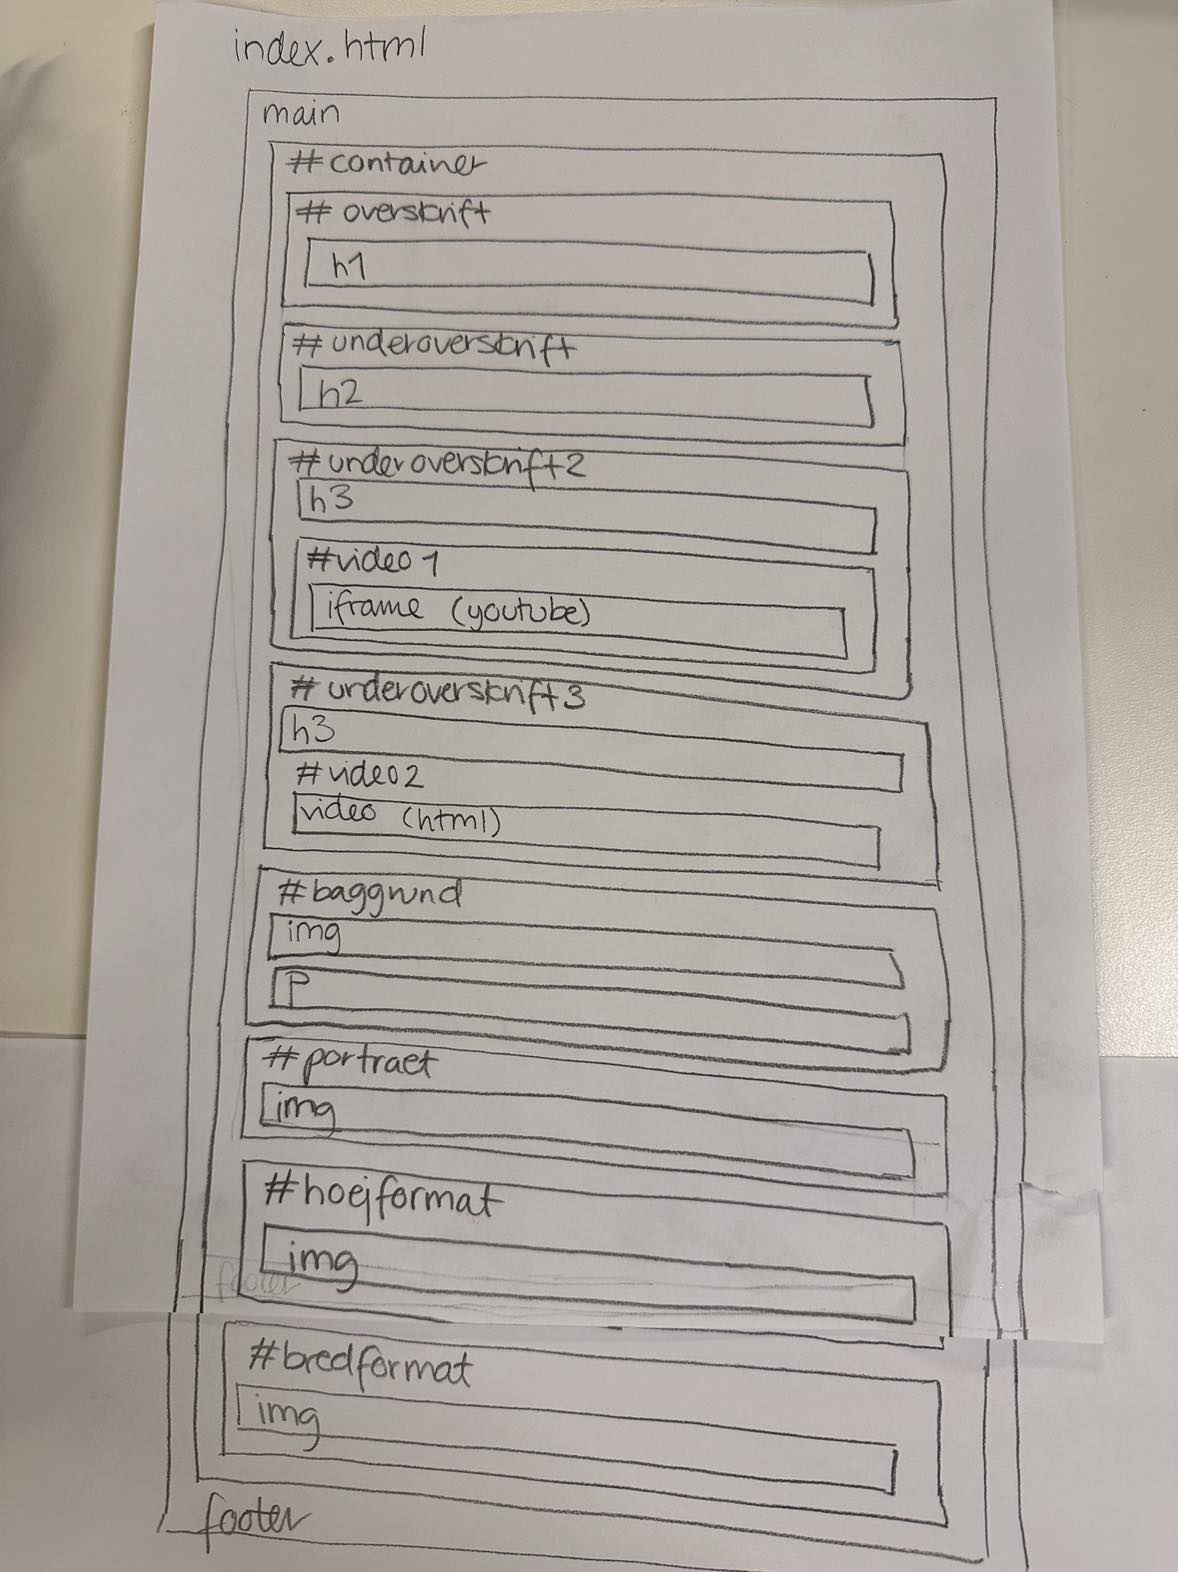 index.html
main
#container
# overskrift
h1
#underoverskrift
h2
#underoverskrift2
h3
#video1
iframe (youtube)
# underoverskrift3
h3
#video2
video (html)
#baggrund
img
P
#portraet
img
#hoejformat
img
footer
#bredformat
img
footer